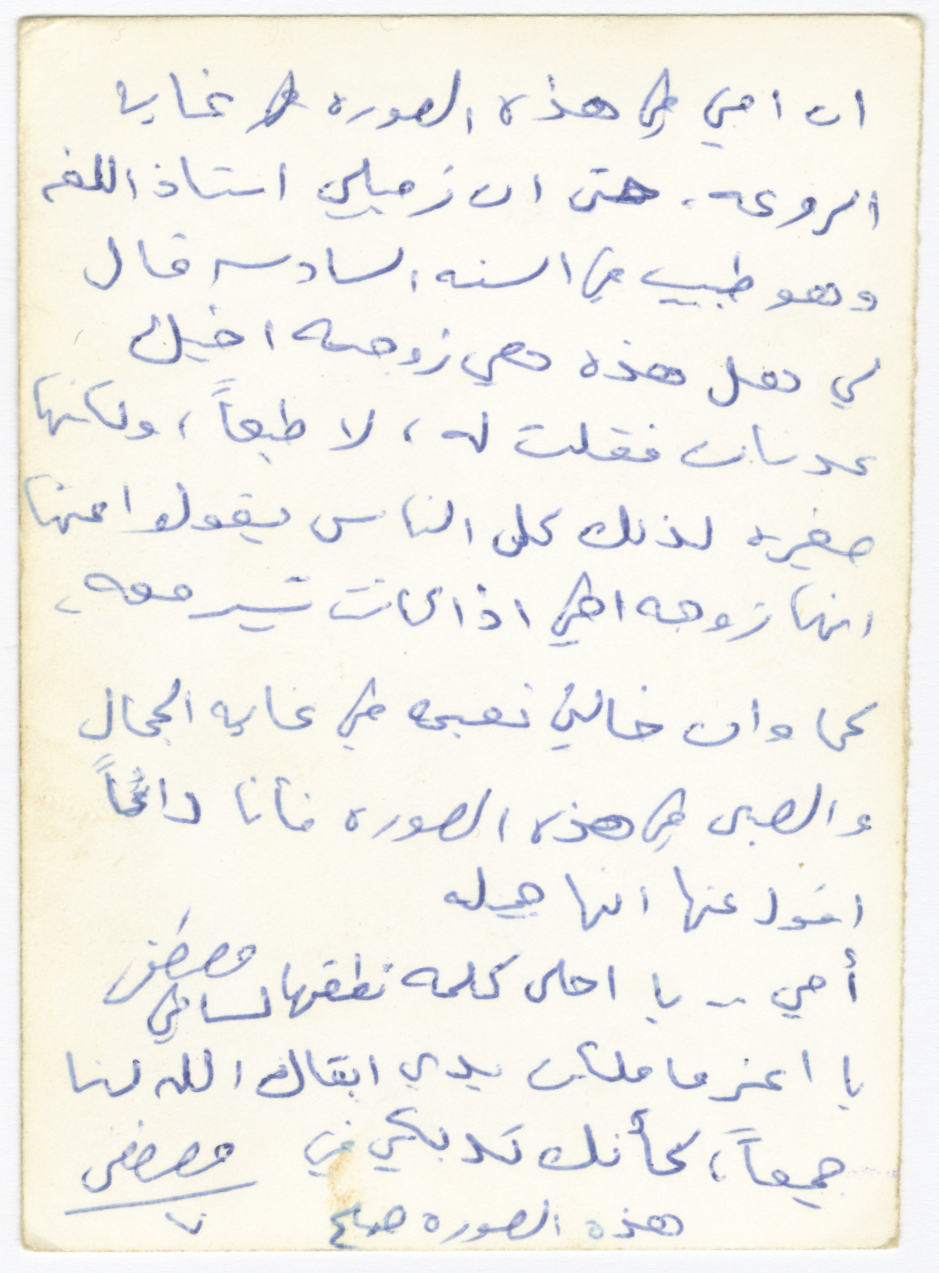 ان امي في هذه الصوره في غايه
الروعه. حتى ان زميلي استاذ اللغه
وهو طبيب في السنه السادسه قال
لي هل هذه هي زوجه اخيك
عدنان فقلت له، لا طبعاً، ولكنها
صغيره لذلك كل الناس يقولوا عنها
انها زوجه اخي اذا كانت تسير معه.
كما وان خالتي في غايه الجمال
والصبى في هذه الصوره فأنا دائماً
اقول عنها انها جميله
مصطفى
أمي .. يا احلى كلمه نطقها لساني
يا اعز ما ملكت يدي ابقاك الله لنا
جميعاً، كأنك في
هذه الصوره
مصطفى